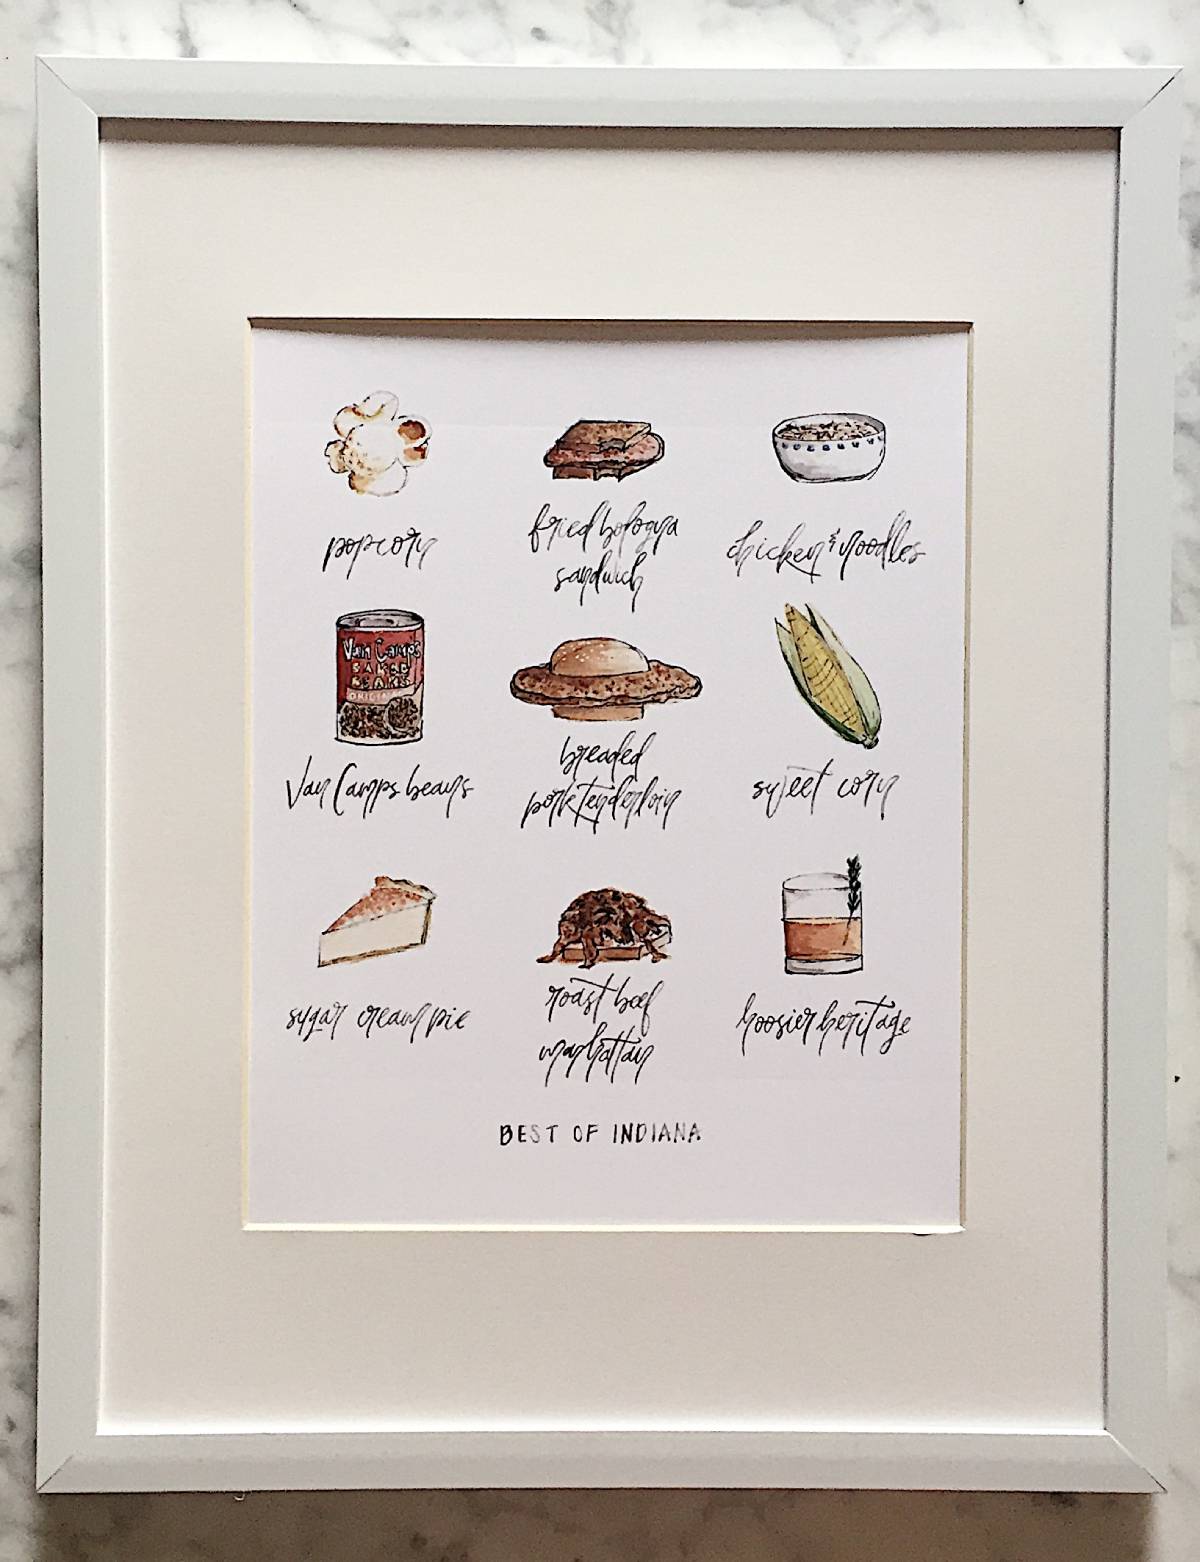 popcorn
fried bologna
sandwich
chicken & noodles
Van Camp's
BAKED
BEANS
ORIGINAL
Van Camps beans
breaded
pork tenderloin
sweet corn
sugar cream pie
roast beef
manhattan
hoosier heritage
BEST OF INDIANA